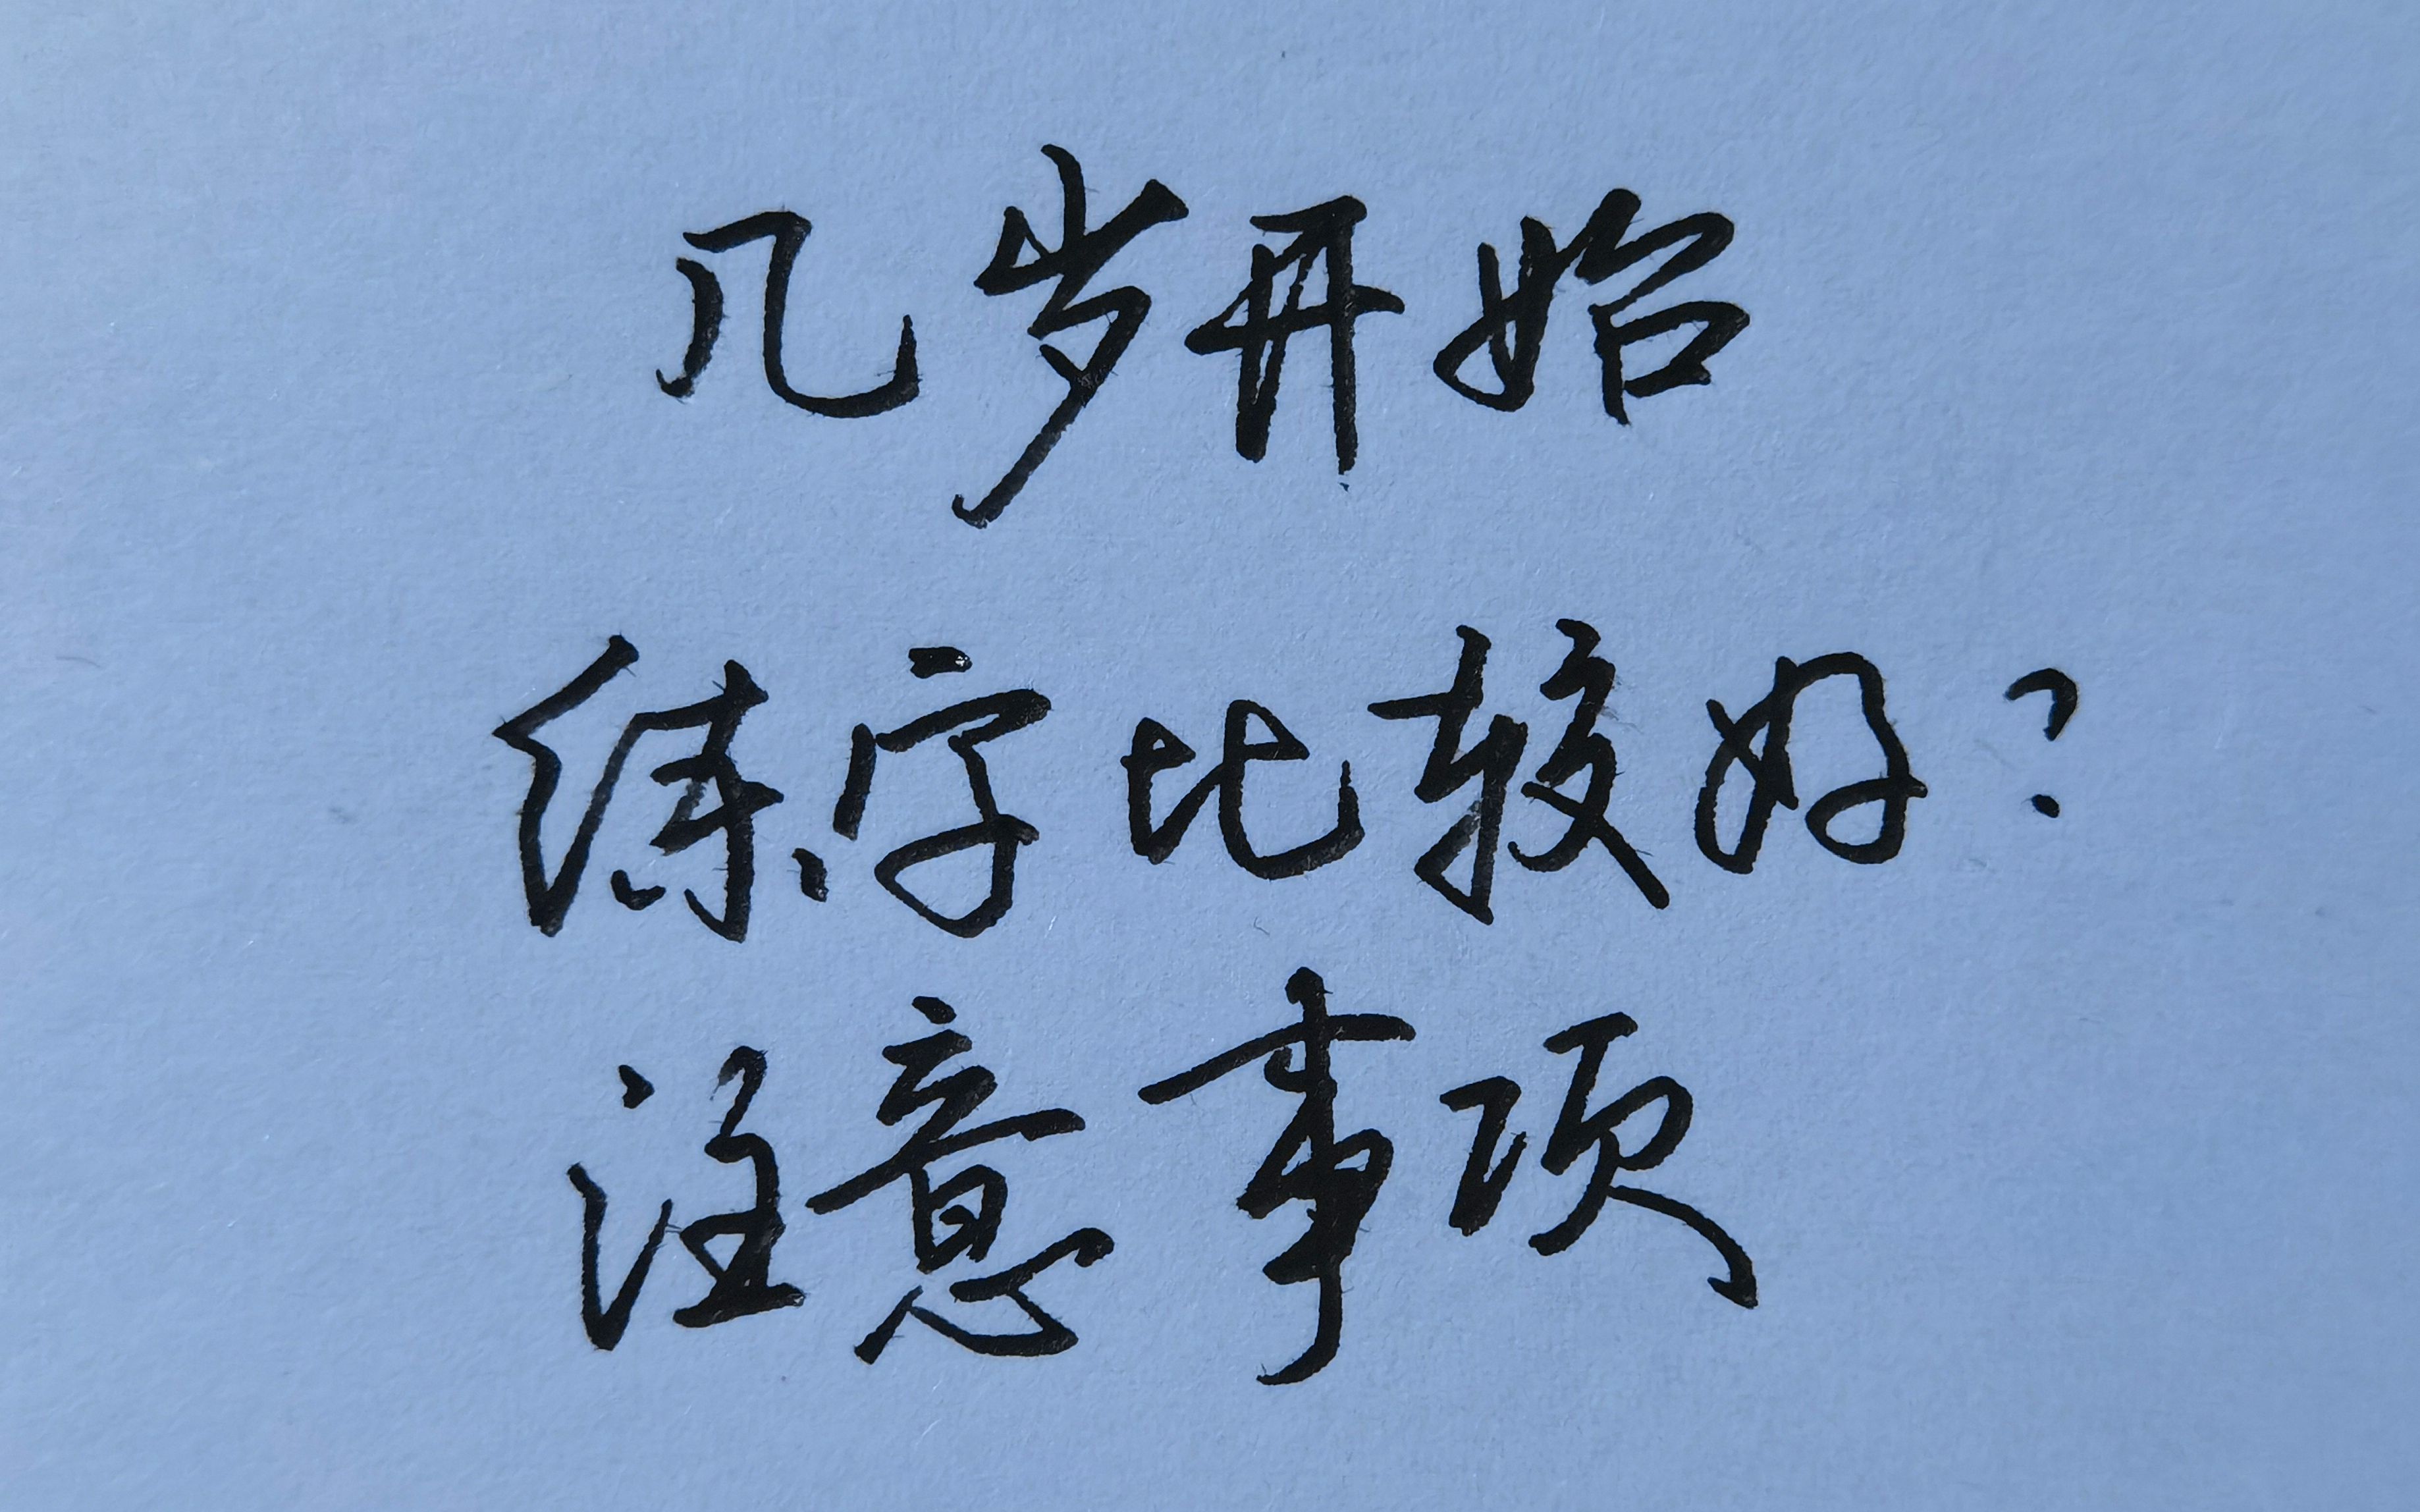 几岁开始
练字比较好?
注意事项